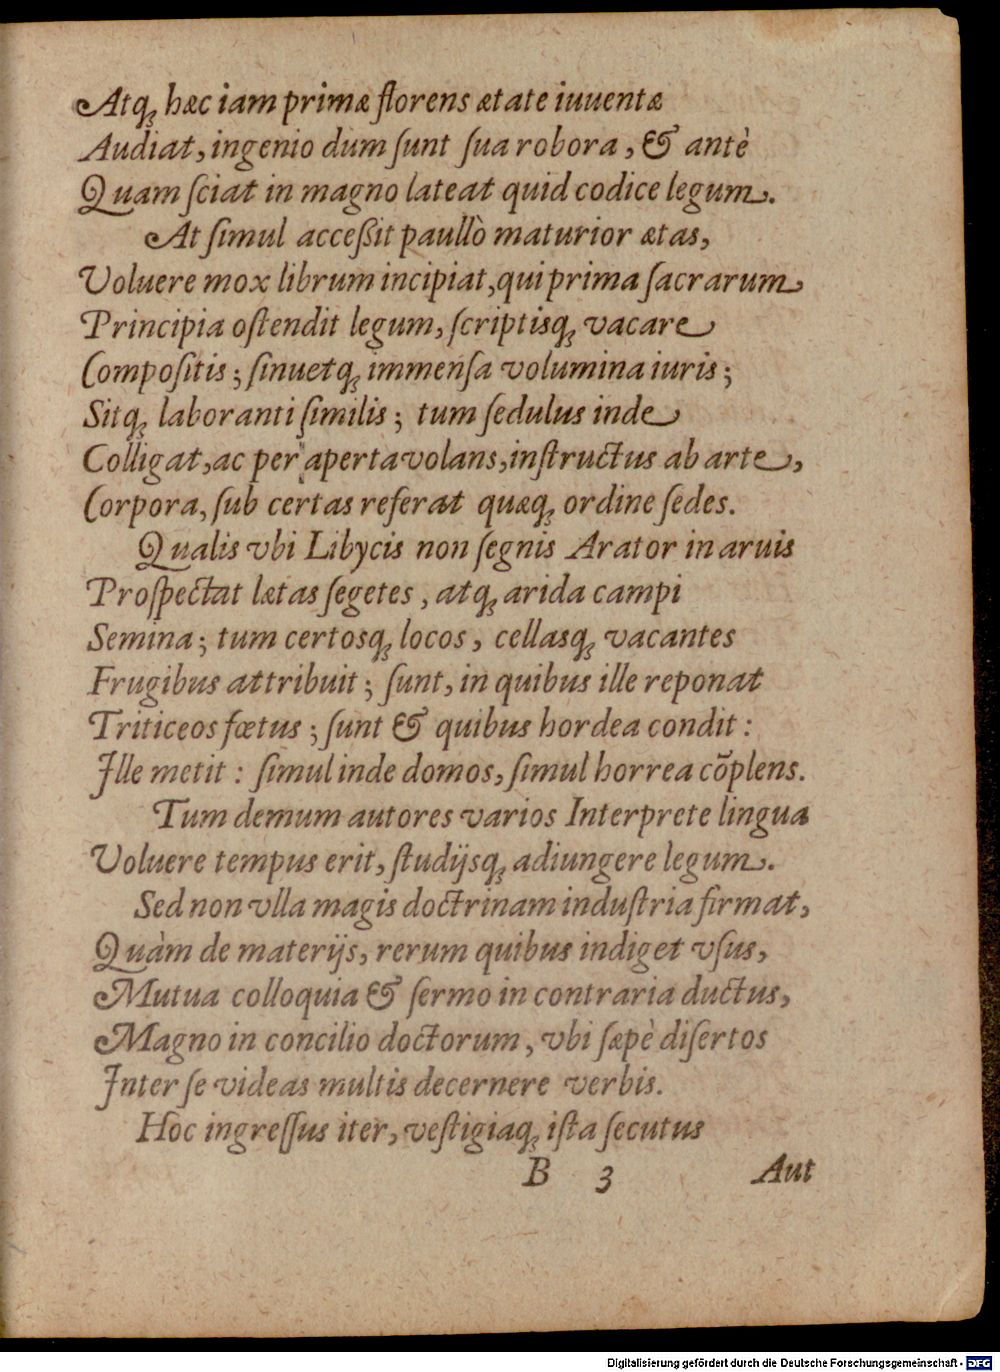 Atq́ꝫ hæc iam primæ florens ætate iuuentæ
Audiat, ingenio dum ſunt ſua robora, & antè
Quam ſciat in magno lateat quid codice legum.
At ſimul acceßit paullò maturior ætas,
Voluere mox librum incipiat, qui prima ſacrarum
Principia oſtendit legum, ſcriptisq́ꝫ vacare
Compoſitis; ſinuetq́ꝫ immenſa volumina iuris;
Sitq́ꝫ laboranti ſimilis; tum ſedulus inde
Colligat, ac per aperta volans, inſtructus ab arte,
Corpora, ſub certas referat quæq́ꝫ ordine ſedes.
Qualis vbi Libycis non ſegnis Arator in aruis
Proſpectat lætas ſegetes, atq́ꝫ arida campi
Semina; tum certosq́ꝫ locos, cellasq́ꝫ vacantes
Frugibus attribuit; ſunt, in quibus ille reponat
Triticeos fœtus; ſunt & quibus hordea condit:
Ille metit: ſimul inde domos, ſimul horrea cōplens.
Tum demum autores varios Interprete lingua
Voluere tempus erit, ſtudijsq́ꝫ adiungere legum.
Sed non vlla magis doctrinam induſtria firmat,
Quàm de materijs, rerum quibus indiget vſus,
Mutua colloquia & ſermo in contraria ductus,
Magno in concilio doctorum, vbi ſæpè diſertos
Inter ſe videas multis decernere verbis.
Hoc ingreſſus iter, veſtigiaq́ꝫ iſta ſecutus
B 3 Aut
Digitalisierung gefördert durch die Deutsche Forschungsgemeinschaft - DFG